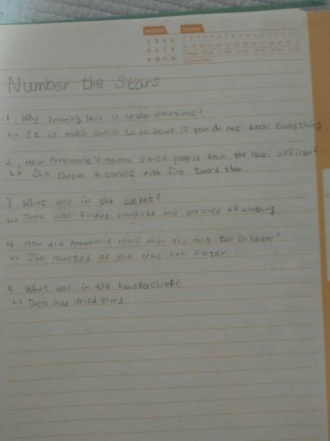 Number the Stars
1. Why knowing less is better sometimes?
↳ It is much easier to be brave if you do not know everything.
2. How Annemarie's saved people from the officer?
↳ She a candle with fire them.
3. What was in the casket?
↳ There was folded blankets and articles of clothing.
4. How did Annemarie's when she met the
↳ She reacted as she was her sister.
5. What was in the handkerchief?
↳ There was dried blood.